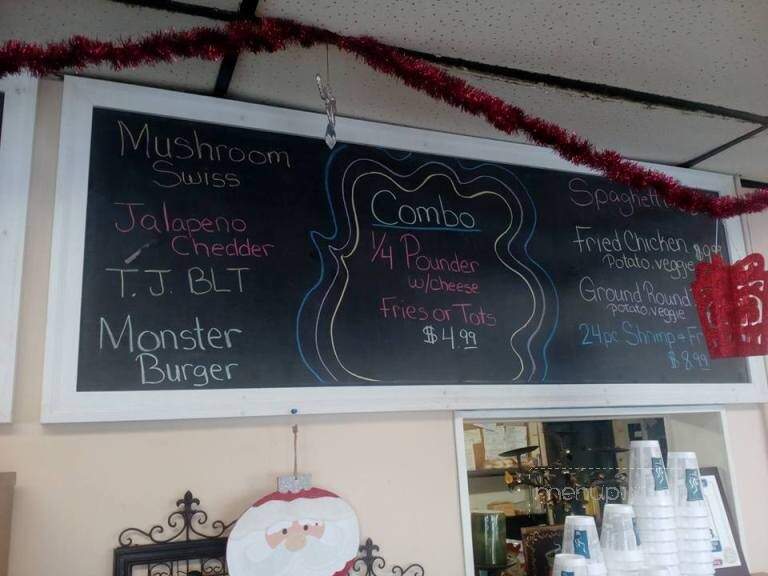 Mushroom
Swiss
Jalapeno
Chedder
T.J. BLT
Monster
Burger
Combo
1/4 Pounder
w/cheese
Fries or Tots
$4.99
Spaghetti
Fried Chicken
Potato. veggie
Ground Round
potato. veggie
24pc Shrimp + Fr
$8.99
menupi